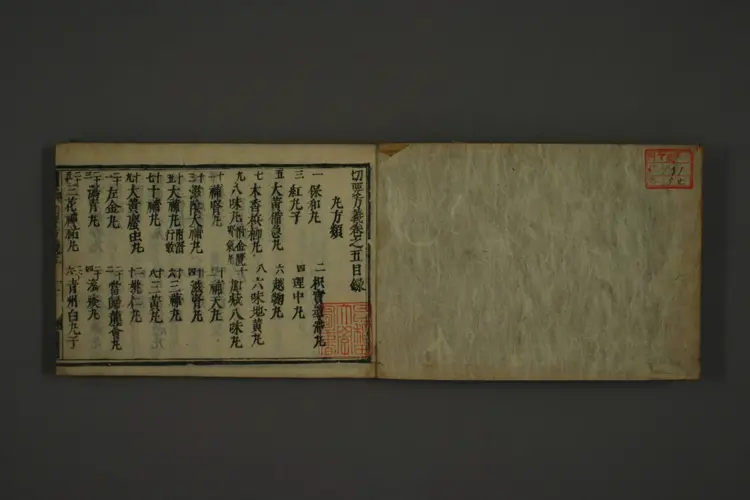 切要方義卷之五目録
丸方類
一 保和丸 二 枳實導滯丸
三 紅丸子 四 理中丸
五 大黃備急丸 六 越鞠丸
七 木香檳榔丸 八 六味地黃丸
九 八味丸 附金匱腎氣丸 十 八味丸
十一 補腎丸 十二 補天丸
十三 滋陰大補丸 十四 滋腎丸
十五 大補丸 附潛行散 十六 三補丸
十七 十補丸 十八 三黃丸
十九 大黃䗪虫丸 二十 麻仁丸
二十一 左金丸 二十二 當歸龍薈丸
二十三 胃丸 二十四 滾痰丸
二十五 三花神祐丸 二十六 青州白丸子